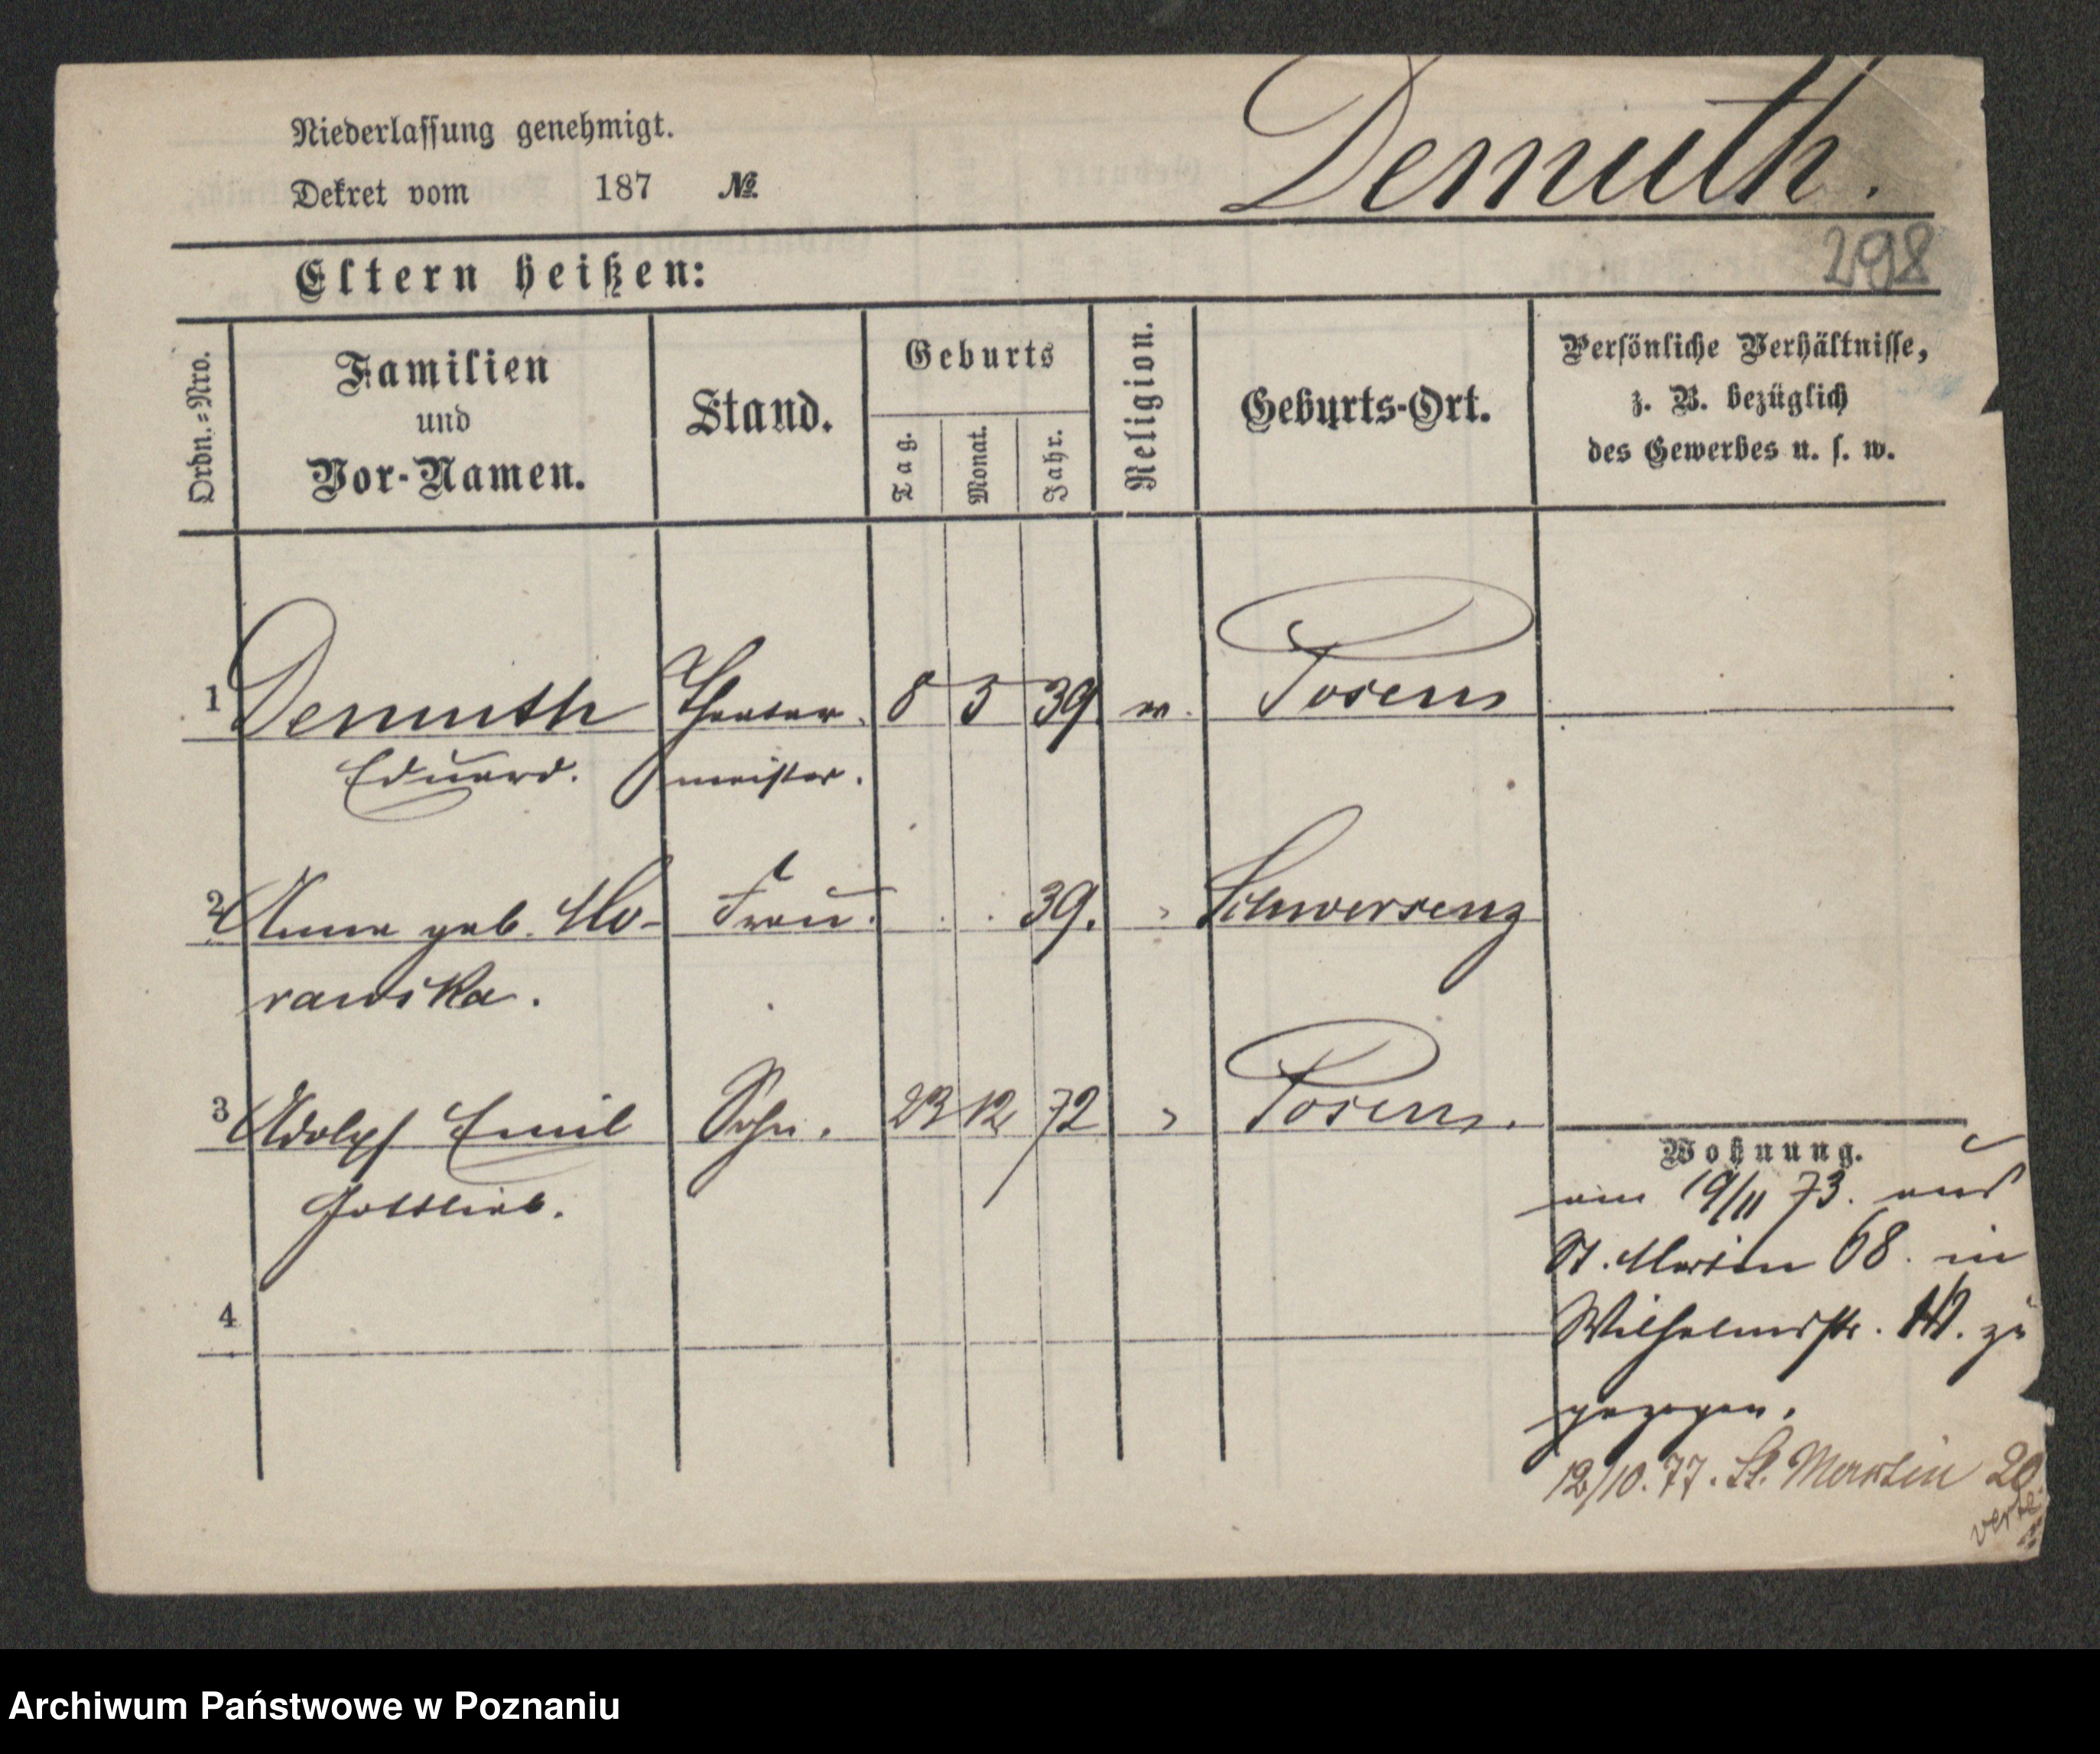 Niederlassung genehmigt.
Dekret vom 187 №
Demuth.
298
Eltern heißen:
Ordn.=Nro.
Familien
und
Vor-Namen.
Stand.
Geburts
Tag.
Monat.
Jahr.
Religion.
Geburts-Ort.
Persönliche Verhältnisse,
z. B. bezüglich
des Gewerbes u. s. w.
1 Demuth Theater- 8 5 39 Posen
Eduard. meister.
2 Anna geb. Mo- Frau. 39. Schwersenz
rawska.
3 Adolph Emil Sohn. 23 12 72 Posen.
Gottlieb.
4
Wohnung.
am 19/11 73. aus
St. Martin 68. in
Wilhelmsstr. zu
gezogen.
12/10. 77. St. Martin 20
Archiwum Państwowe w Poznaniu